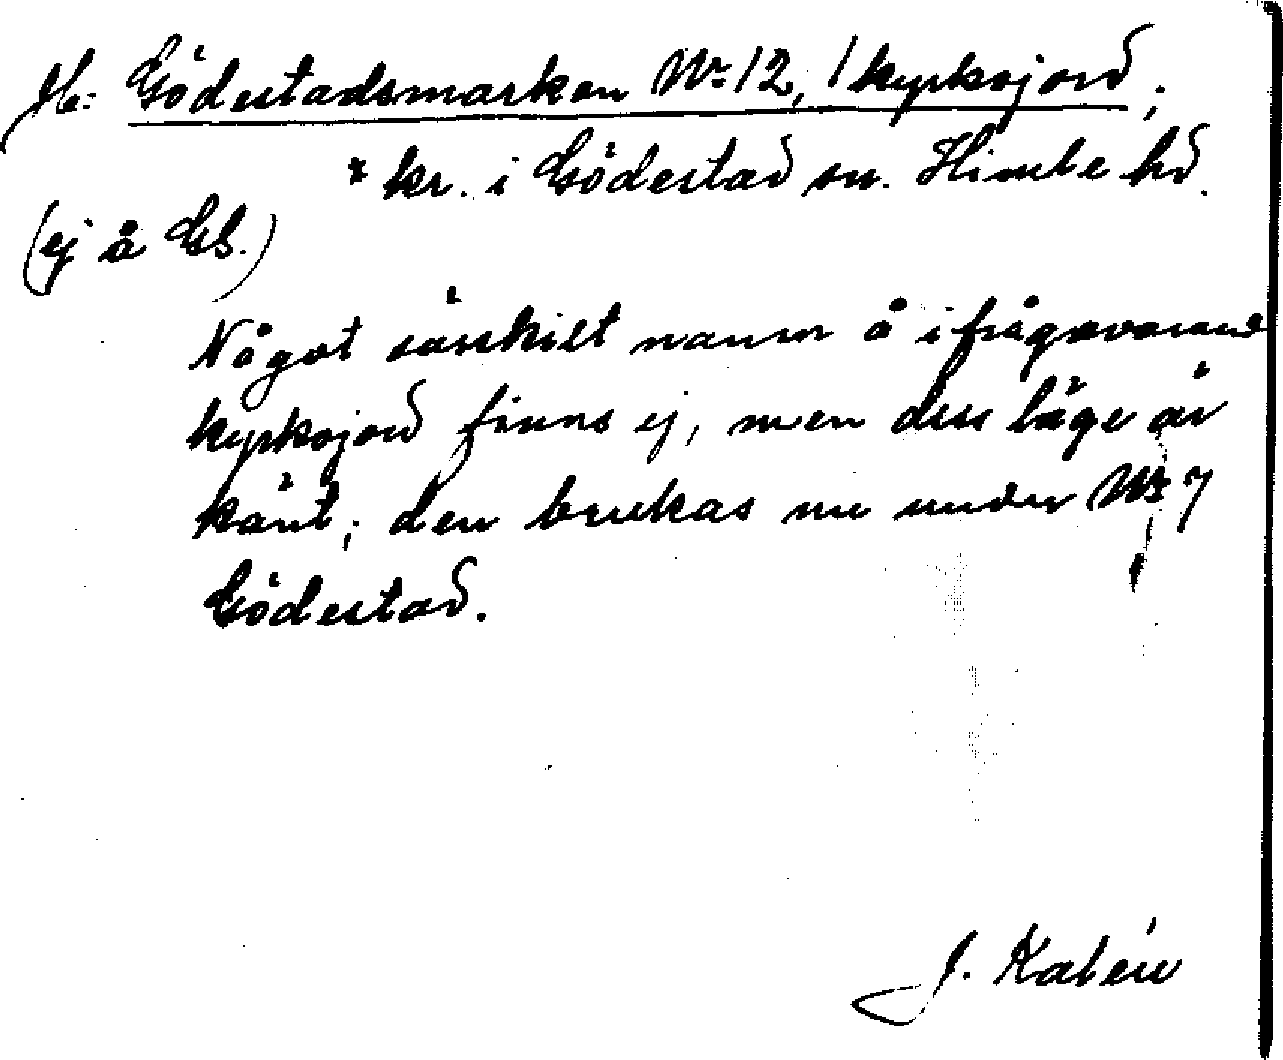 Hl: Gödestadsmarken No 12, 1 kyrkojord;
* kr. i Gödestad sn. Himle hd.
(ej å Gb.)
Något särskilt namn å ifrågavarand
kyrkojord finns ej, men dess läge är
känt; den brukas nu under No 7
Gödestad.
J. Kalén